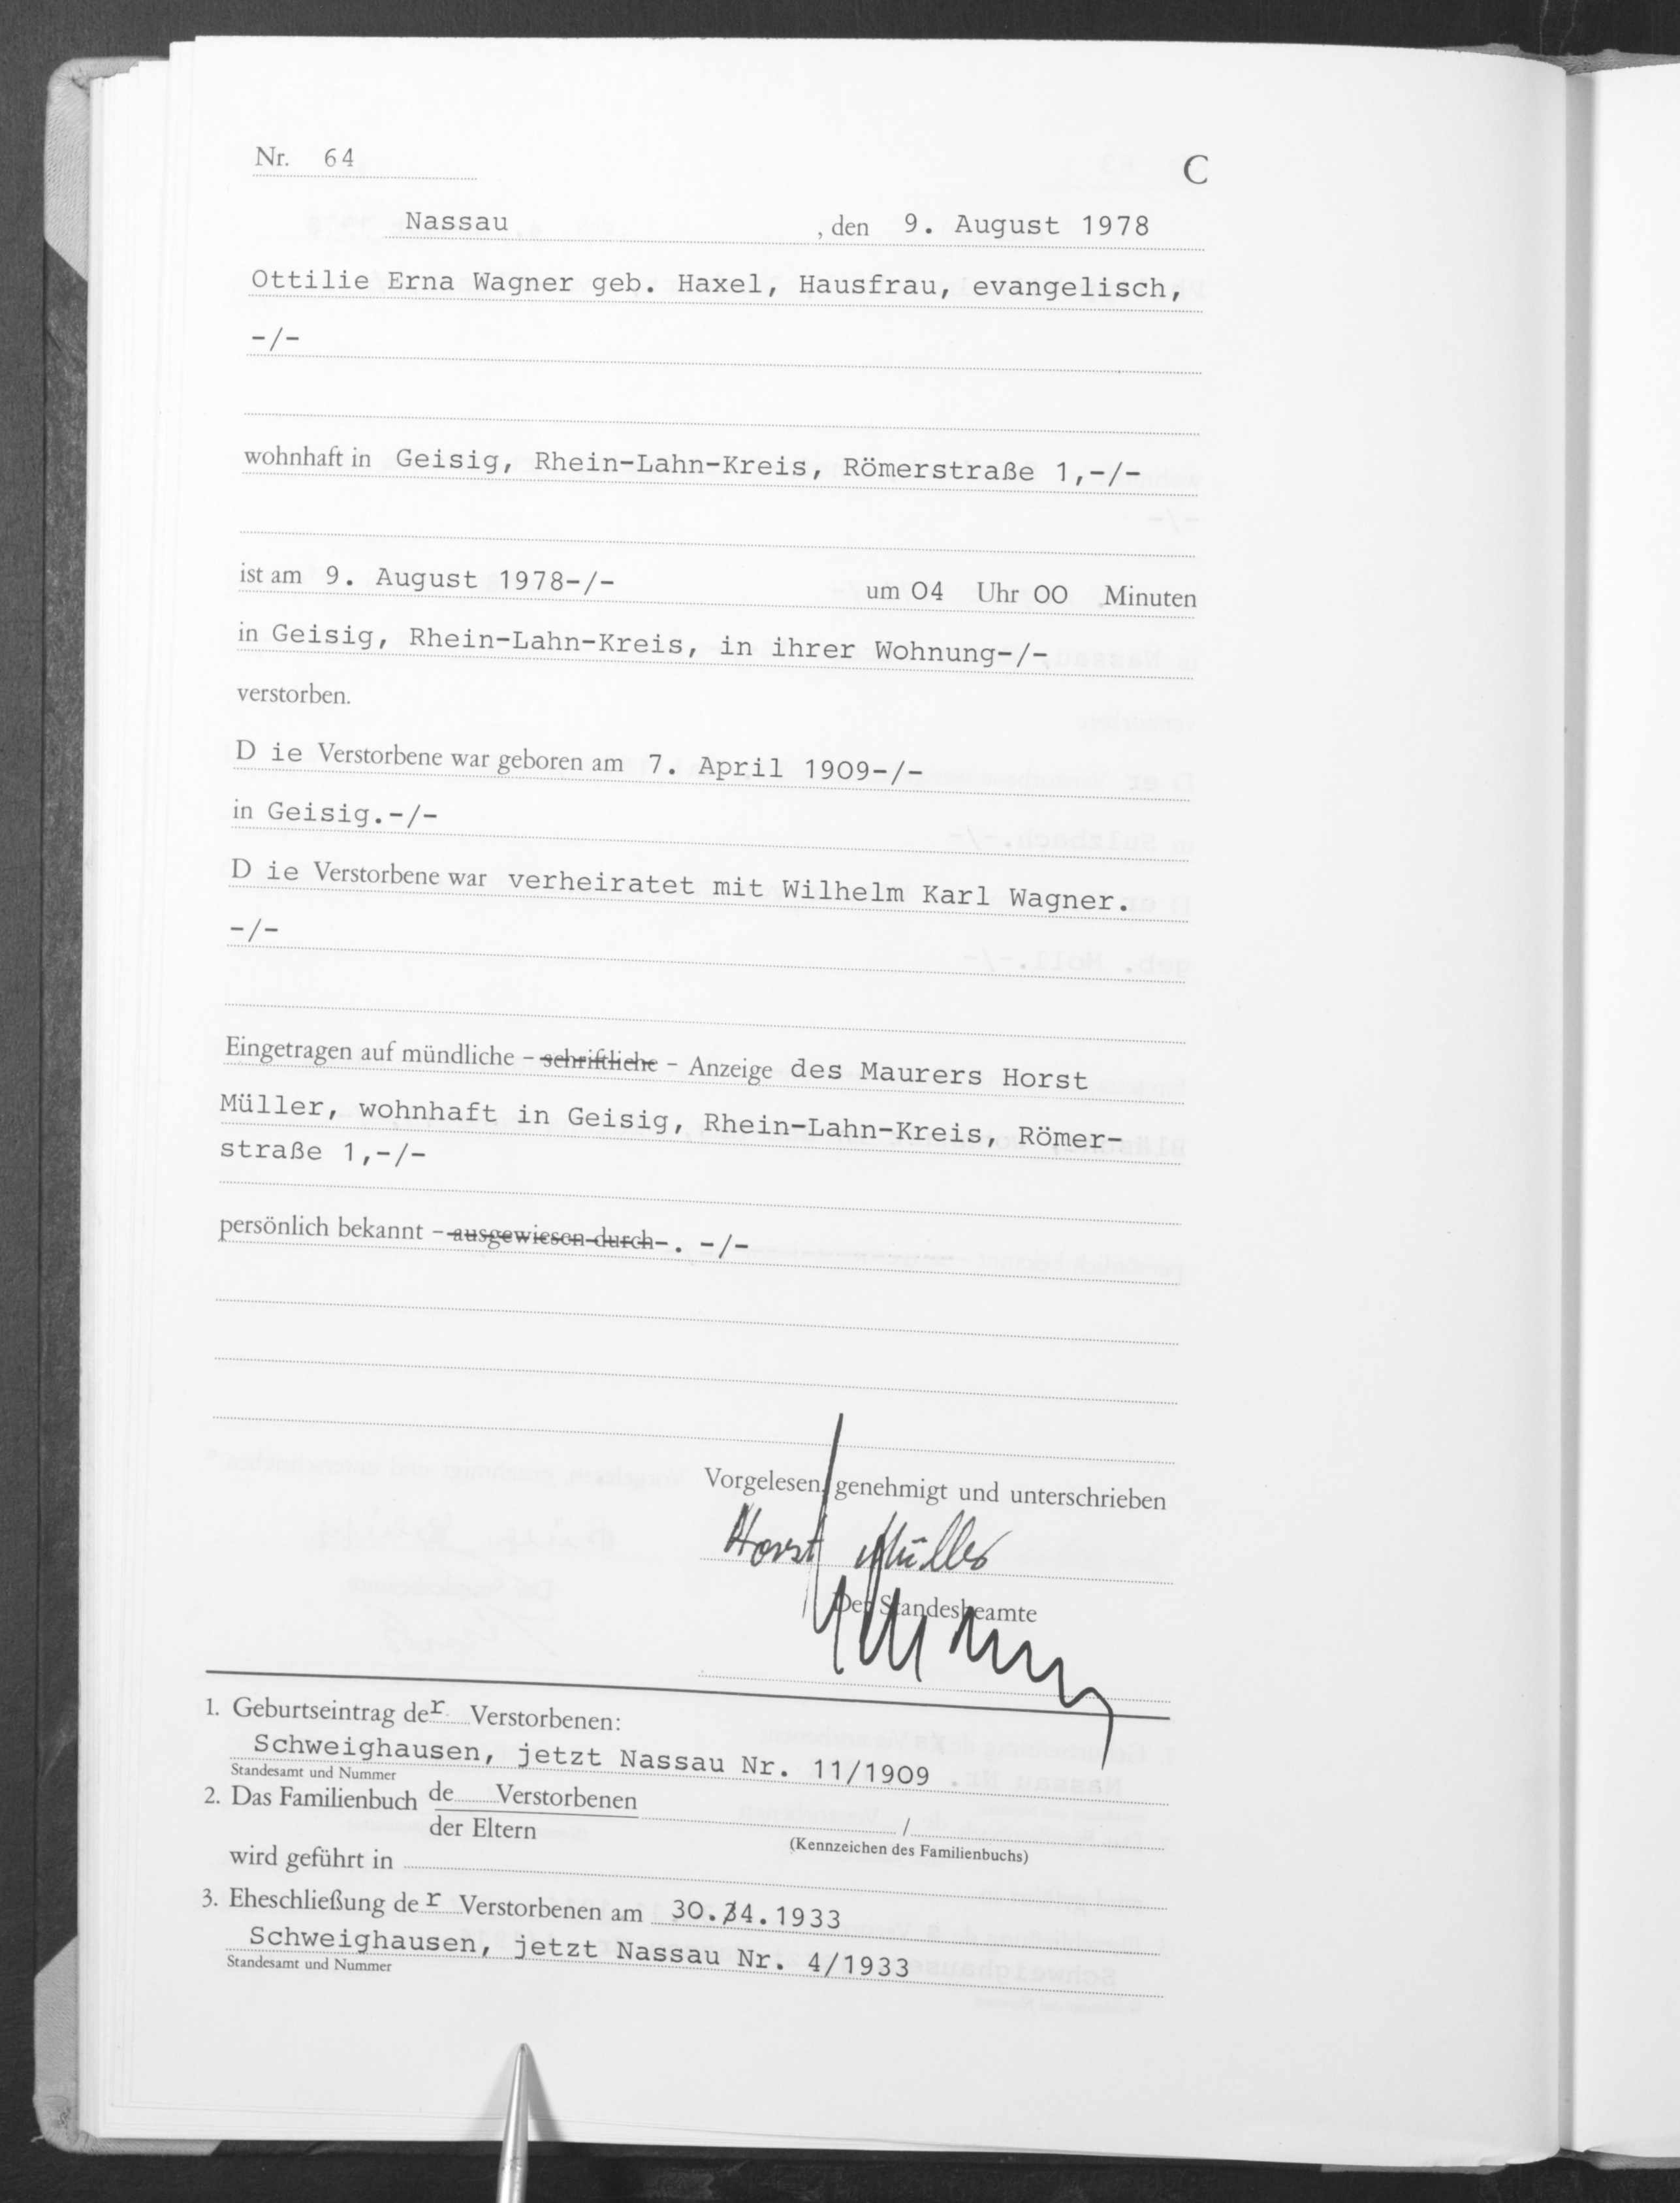 Nr. 64
C
Nassau , den 9. August 1978
Ottilie Erna Wagner geb. Haxel, Hausfrau, evangelisch,
-/-
wohnhaft in Geisig, Rhein-Lahn-Kreis, Römerstraße 1,-/-
ist am 9. August 1978-/- um 04 Uhr 00 Minuten
in Geisig, Rhein-Lahn-Kreis, in ihrer Wohnung-/-
verstorben.
D ie Verstorbene war geboren am 7. April 1909-/-
in Geisig.-/-
D ie Verstorbene war verheiratet mit Wilhelm Karl Wagner.
-/-
Eingetragen auf mündliche - schriftliche - Anzeige des Maurers Horst
Müller, wohnhaft in Geisig, Rhein-Lahn-Kreis, Römer-
straße 1,-/-
persönlich bekannt - ausgewiesen durch-. -/-
Vorgelesen, genehmigt und unterschrieben
Horst Müller
Der Standesbeamte
1. Geburtseintrag der Verstorbenen:
Schweighausen, jetzt Nassau Nr. 11/1909
Standesamt und Nummer
2. Das Familienbuch de Verstorbenen
der Eltern
/
(Kennzeichen des Familienbuchs)
wird geführt in
3. Eheschließung der Verstorbenen am 30. 4.1933
Schweighausen, jetzt Nassau Nr. 4/1933
Standesamt und Nummer